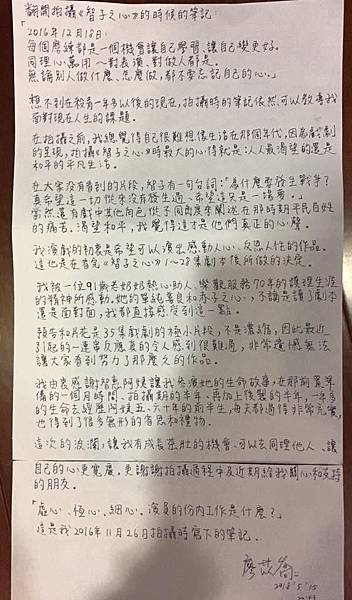 翻開拍攝《智子之心》的時候的筆記:
「2016年12月18日:
每個磨練都是一個機會讓自己學習、讓自己變更好。
同理心萬用~對表演、對做人都是。
無論別人做什麼、怎麼做,都不要忘記自己的心。」
想不到在教育一年多以後的現在,拍攝時的筆記依然可以教導我
面對現在人生的課題。
在拍攝之前,我總覺得自己很難想像生活在那個年代,因為戲劇
的呈現,拍攝《智子之心》時最大的心得就是:人人最渴望的還是
和平的平凡生活。
在大家沒有看到的片段,智子有一句台詞:「為什麼要發生戰爭?
真希望這一切從來沒有發生過、希望這只是一場夢。」
當然還有戲中其他角色從不同角度來闡述在那時期平民百姓
的痛苦。渴望和平,我覺得這才是他們真正的心聲。
我演戲的初衷是希望可以演出感動人心、反思人性的作品。
這也是在看完《智子之心》1~28集劇本後所做的決定。
我被一位91歲老奶奶熱心助人、樂觀服務70年的護理生涯
的精神所感動。她的單純善良和赤子之心,不論是讀劇本
還是面對面,我都直接感受到這一點。
預告和片花是35集戲劇的極小片段,不是濃縮,因此最近
引起的一連串反應真的令人感到很難過,非常遺憾無法
讓大家看到努力了那麼久的作品。
我由衷感謝智惠阿嬤讓我參演她的生命故事,在那前置準
備的一個月時間、拍攝期的半年、再加上後製的半年,一年多
的生命去經歷阿嬤五、六十年的前半生,每天都過得非常充實,
也得到了很多無形的省思和禮物。
這次的波瀾,讓我有成長茁壯的機會、可以去同理他人、讓
自己的心更寬廣。更謝謝拍攝過程中及近期給我關心和支持
的朋友。
「虛心、恆心、細心。演員的份內工作是什麼?」
這是我2016年11月26日拍攝時寫下的筆記。
廖苡喬
2018/5/15